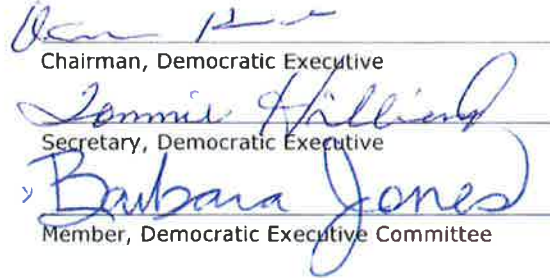 Chairman, Democratic Executive
Tommie Hilliard
Secretary, Democratic Executive
Barbara Jones
Member, Democratic Executive Committee